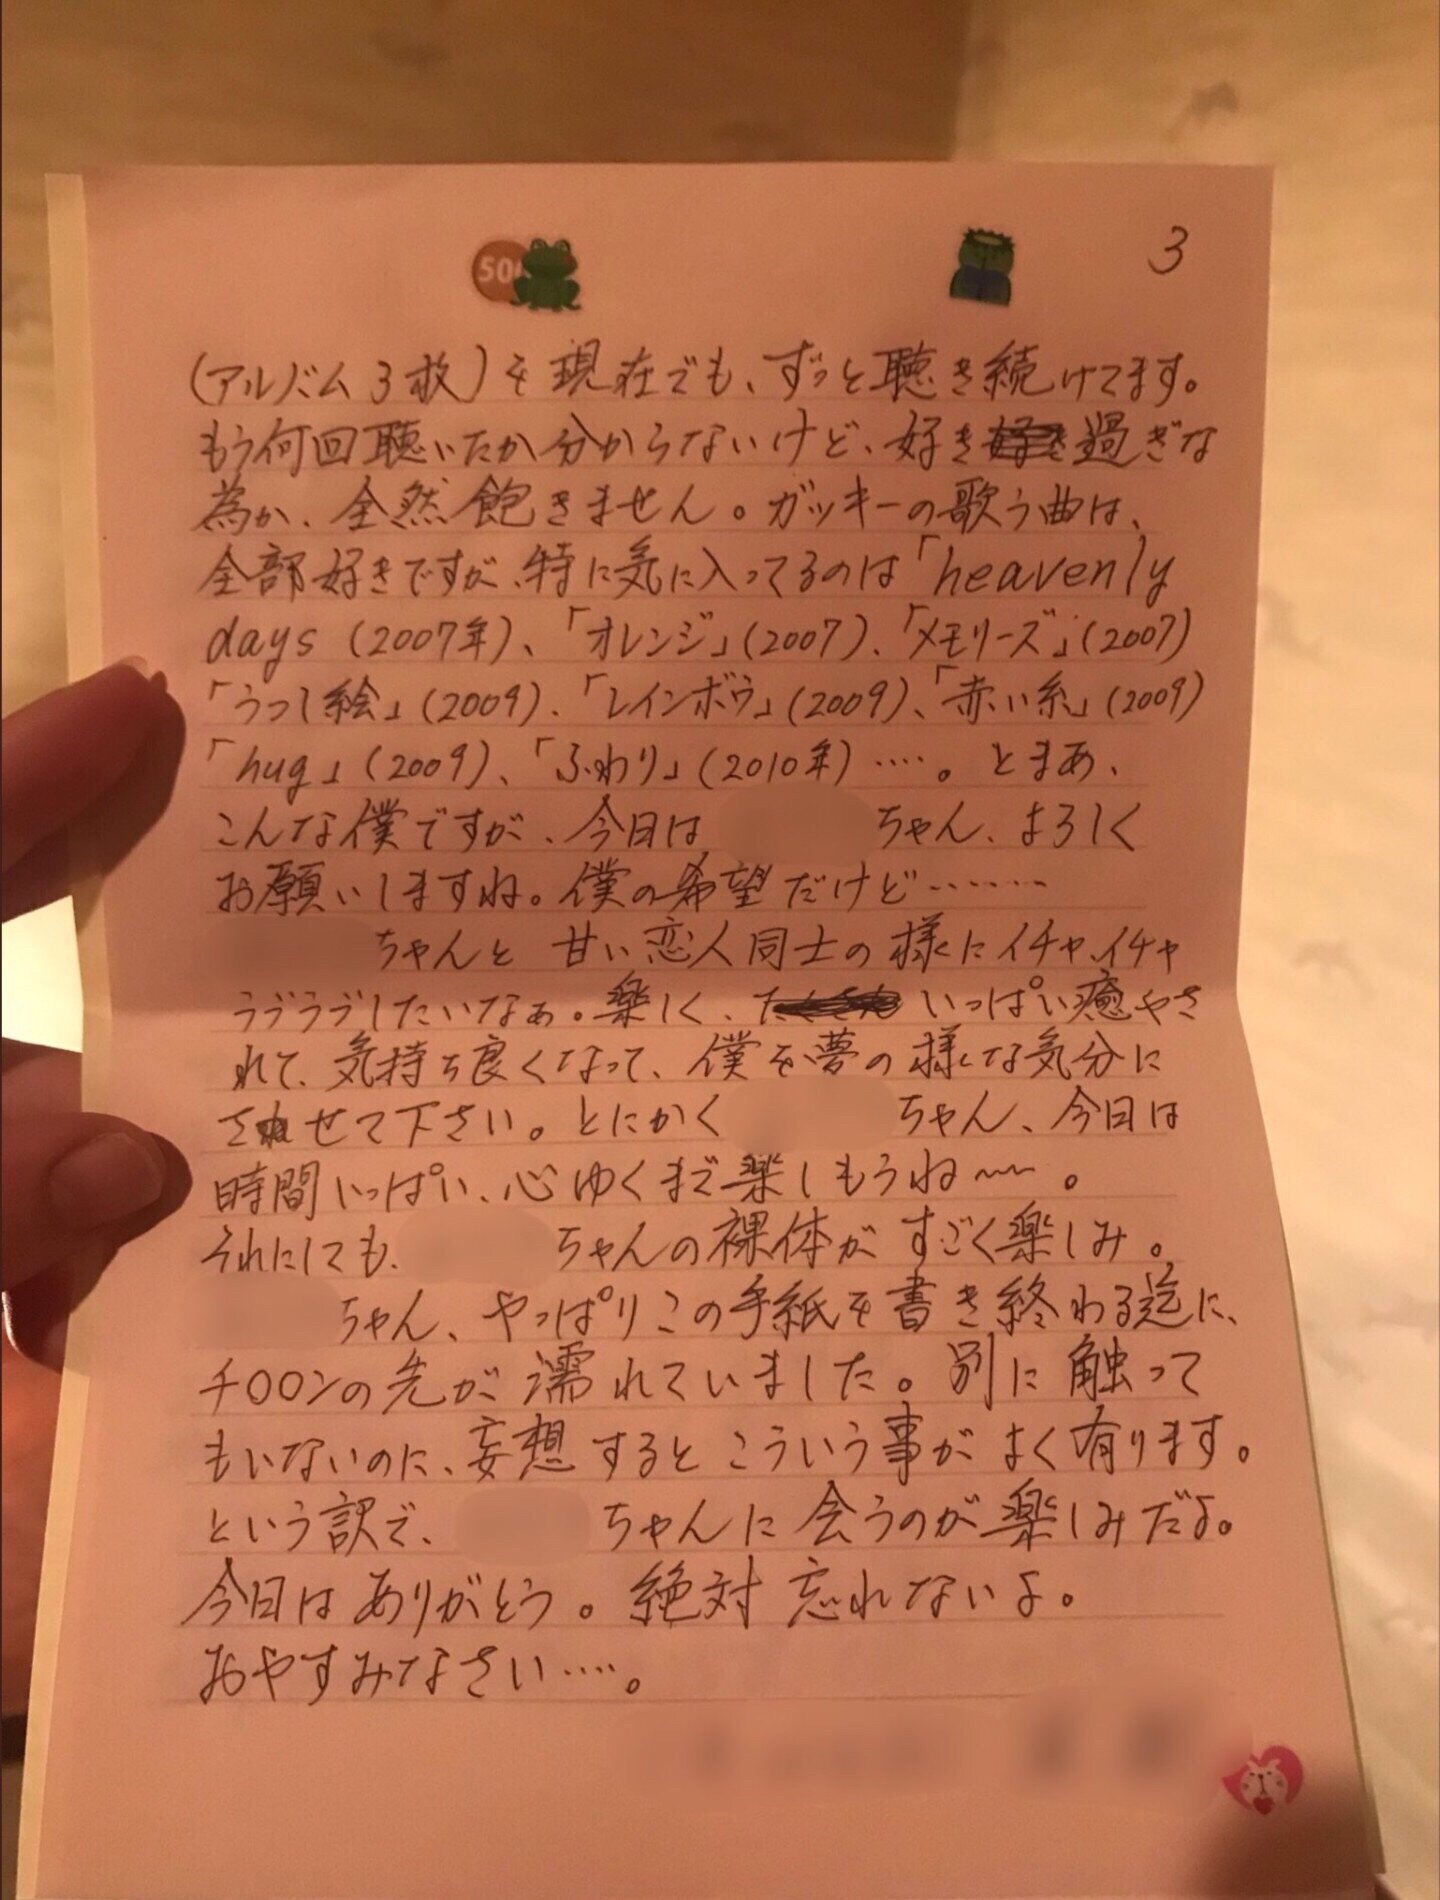 50
3
(アルバム3枚)を現在でも、ずっと聴き続けてます。
もう何回聴いたか分からないけど、好き過ぎな
為か、全然飽きません。ガッキーの歌う曲は、
全部好きですが、特に気に入ってるのは「heavenly
days (2007年)、「オレンジ」(2007)、「メモリーズ」(2007)
「うつし絵」(2009)、「レインボウ」(2009)、「赤い糸」(2009)
「hug」(2009)、「ふわり」(2010年)‥‥。とまあ、
こんな僕ですが、今日は ちゃん、よろしく
お願いしますね。僕の希望だけど‥‥‥‥
ちゃんと 甘い恋人同士の様にイチャイチャ
ラブラブしたいなぁ。楽しく、いっぱい癒やさ
れて、気持ち良くなって、僕を夢の様な気分に
させて下さい。とにかく ちゃん、今日は
時間いっぱい、心ゆくまで楽しもうね〜〜。
それにしても、 ちゃんの裸体がすごく楽しみ。
ちゃん、やっぱりこの手紙を書き終わる迄に、
チ○○ンの先が濡れていました。別に触って
もいないのに、妄想するとこういう事がよく有ります。
という訳で、 ちゃんに会うのが楽しみだよ。
今日はありがとう。絶対忘れないよ。
おやすみなさい‥‥。